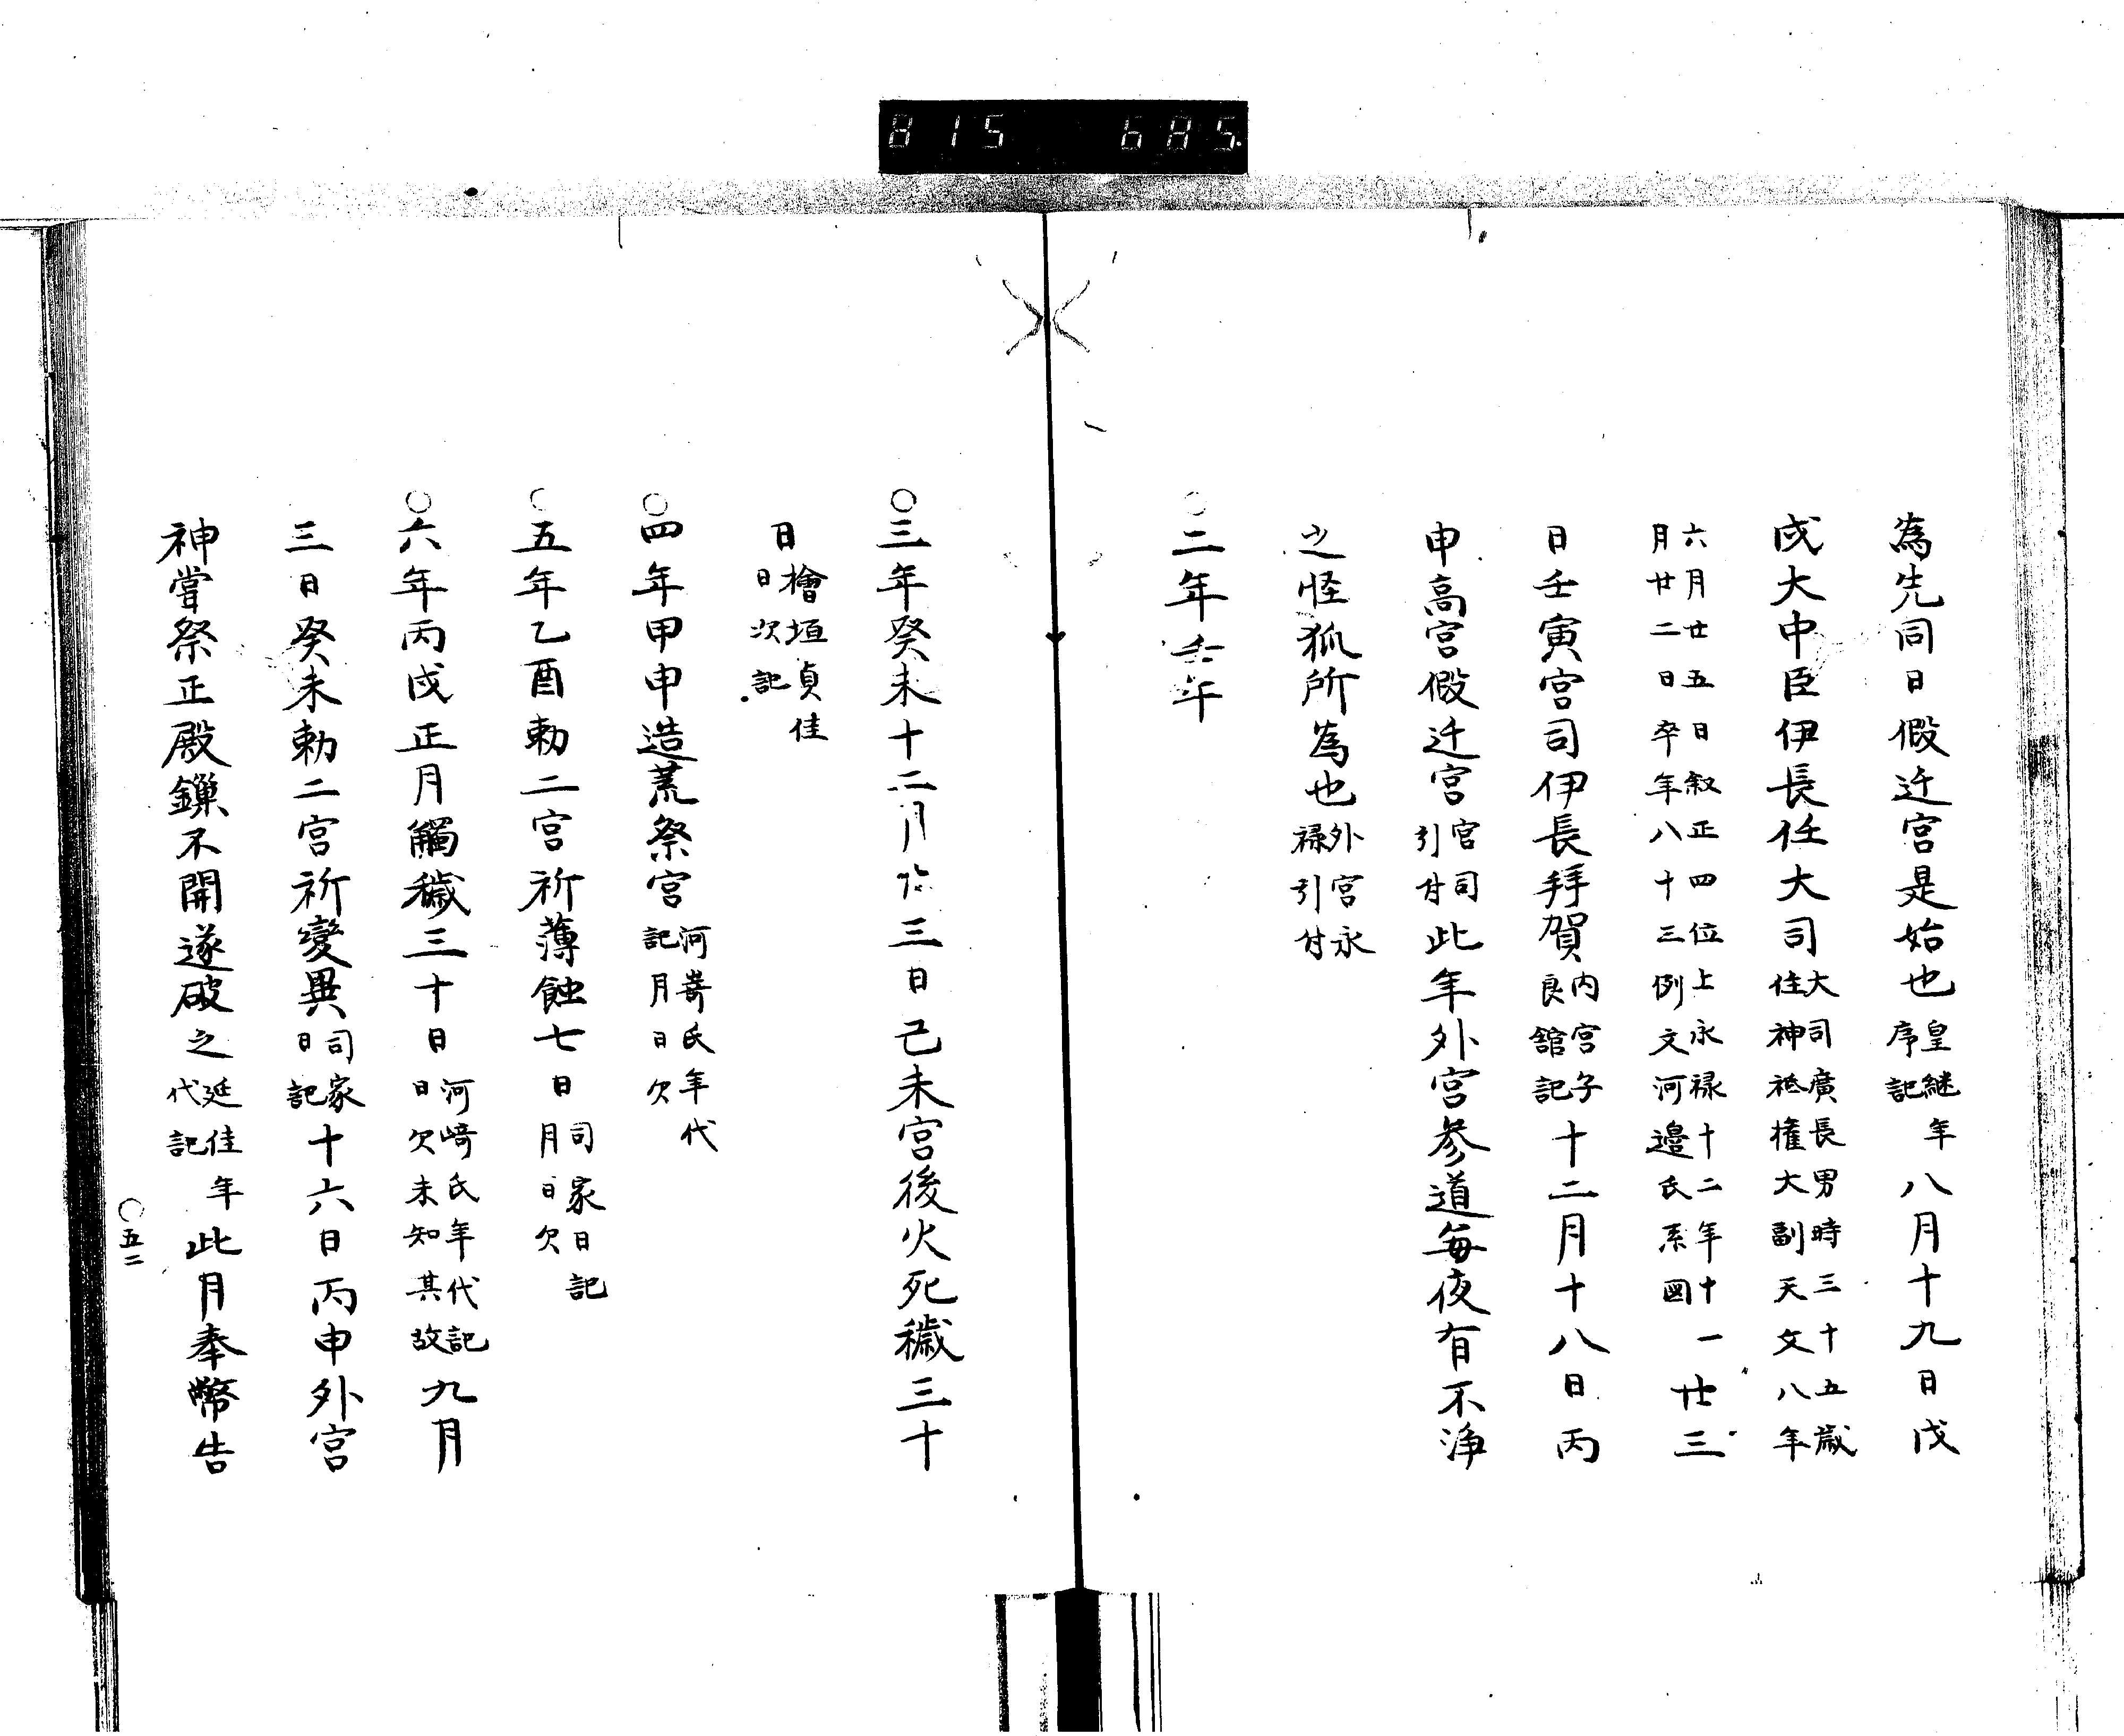 815 685
為先同日假迁宮是始也皇継年序記八月十九日戊
戌大中臣伊長任大司大司廣長男時三十五歳任神祗權大副天文八年
六月廿五日叙正四位上永禄十二年十一月廿二日卒年八十三例文河邉氏系圖廿三
日壬寅宮司伊長拜賀内宮子良舘記十二月十八日丙
申高宮假迁宮宮司引付此年外宮参道毎夜有不浄
之怪狐所為也外宮永禄引付
○二年壬午
○三年癸未十二月三日己未宮後火死穢三十
日檜垣貞佳日次記
○四年甲申造荒祭宮河嵜氏年代記月日欠
○五年乙酉勅二宮祈薄蝕七日司家日記月日欠
○六年丙戌正月觸穢三十日河﨑氏年代記日欠未知其故九月
三日癸未勅二宮祈變異司家日記十六日丙申外宮
神嘗祭正殿鏁不開遂破之延佳年代記此月奉幣告
○五二